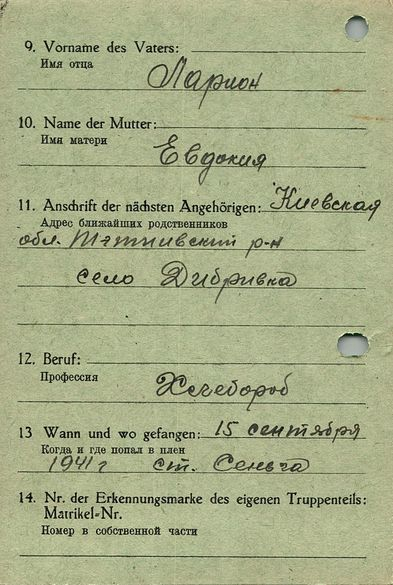 9. Vorname des Vaters:
Имя отца
Ларион
10. Name der Mutter:
Имя матери
Евдокия
11. Anschrift der nächsten Angehörigen: Киевская
Адрес ближайших родственников
обл. Тетиивский р-н
село Дибривка
12. Beruf:
Профессия
Хлебороб
13 Wann und wo gefangen: 15 сентября
Когда и где попал в плен
1941 г ст. Сеньча
14. Nr. der Erkennungsmarke des eigenen Truppenteils:
Matrikel-Nr.
Номер в собственной части